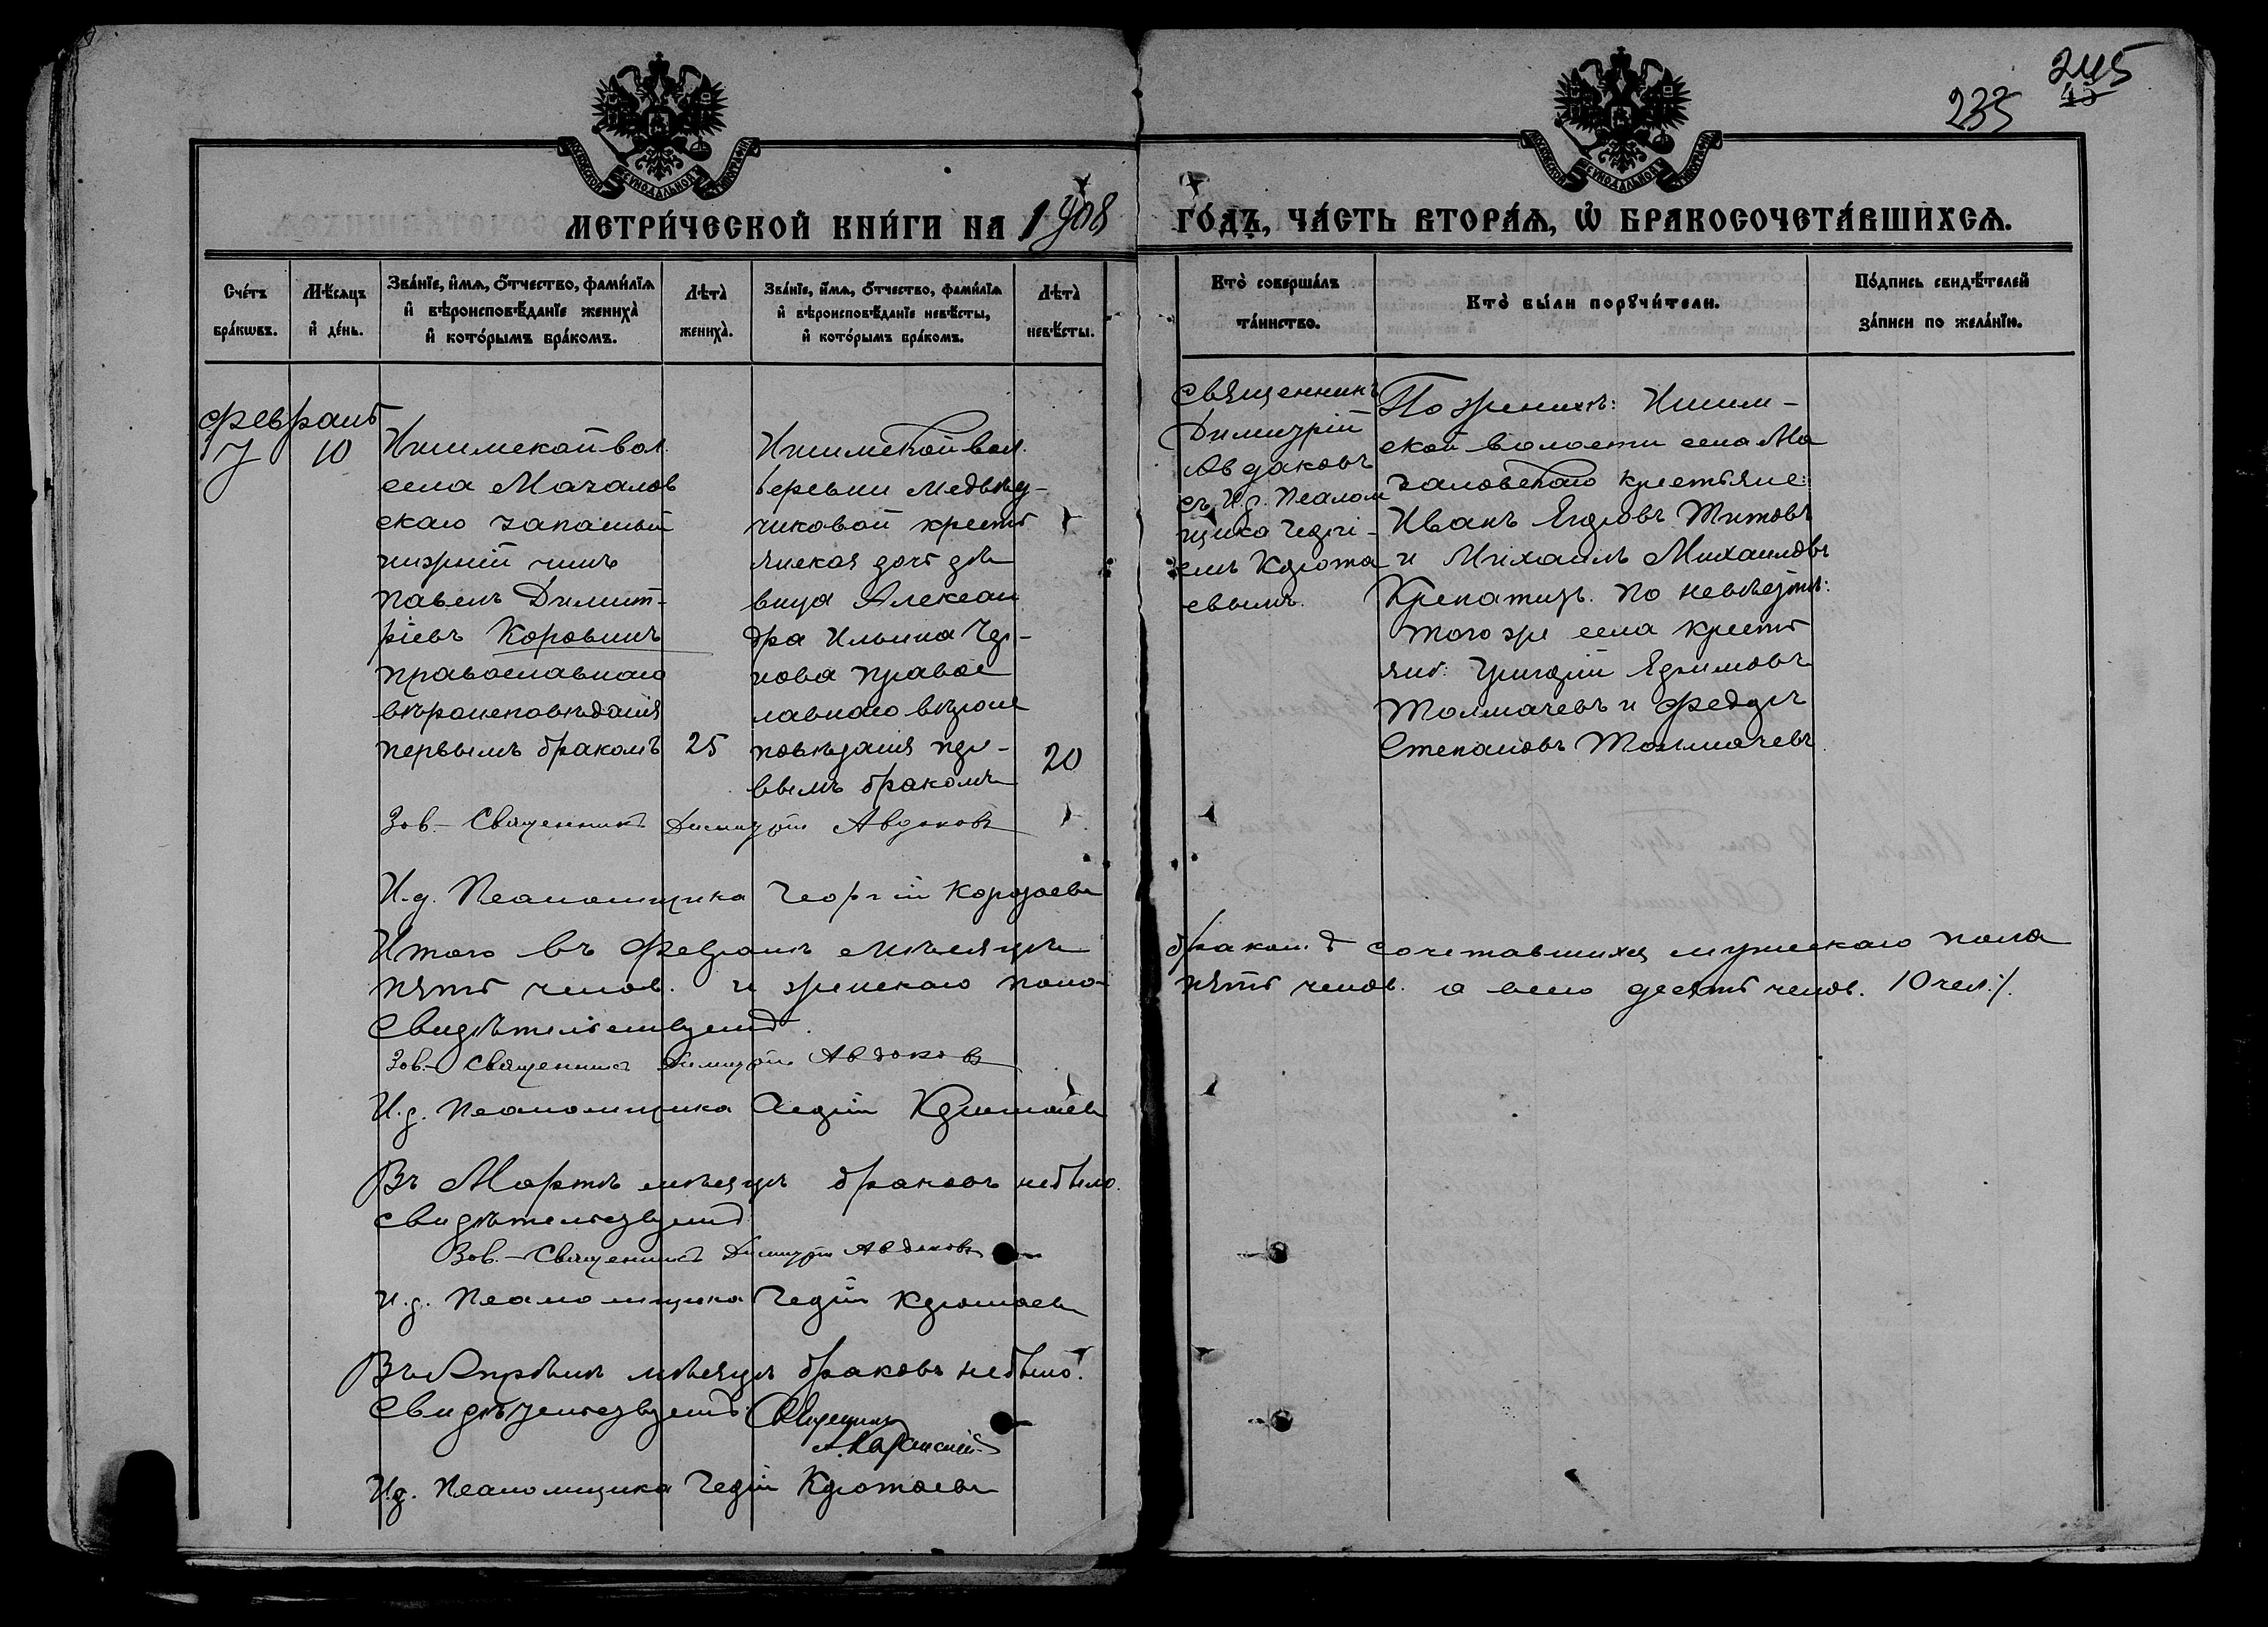 245
235 45
МОСКОВСКОЙ СѴНОДАЛЬНОЙ ТИПОГРАФІИ
МОСКОВСКОЙ СѴНОДАЛЬНОЙ ТИПОГРАФІИ
МЕТРИ́ЧЕСКОЙ КНИ́ГИ НА 1908 ГО́ДЪ, ЧА́СТЬ ВТОРА́Ѧ, Ѽ БРАКОСОЧЕТА́ВШИХСѦ.
Сче́тъ бра́кѡвъ.
Мѣ́сѧцъ и҆ де́нь.
Зва́нїе, и҆́мѧ, ѻ҆́тчество, фами́лїѧ и҆ вѣроисповѣ́данїе жениха̀ и҆ кото́рымъ бра́комъ.
Лѣта̀ жениха̀.
Зва́нїе, и҆́мѧ, ѻ҆́тчество, фами́лїѧ и҆ вѣроисповѣ́данїе невѣ́сты, и҆ кото́рымъ бра́комъ.
Лѣта̀ невѣ́сты.
Кто̀ соверша́лъ та́инство.
Кто̀ бы́ли порꙋчи́тели.
По́дпись свидѣ́телей за́писи по жела́нїю.
Февраль
7
10
Ишимской вол.
села Мазалов
скаго запасный
нижній чинъ
Павелъ Димит-
ріевъ Коровинъ
православнаго
вѣроисповѣданія
первымъ бракомъ
25
Ишимской вол.
деревни Медвѣд-
чиковой кресть
янская дочь дѣ
вица Алексан
дра Ильина Чер-
нова правос
лавнаго вѣроис
повѣданія пер-
вымъ бракомъ
20
Священникъ
Димитрій
Авдаковъ
съ И.д. Псалом
щика Георгі-
емъ Корота
евымъ.
По женихѣ: Ишим-
ской волости села Ма
заловскаго крестьяне:
Иванъ Егоровъ Титовъ
и Михаилъ Михаиловъ
по невѣстѣ:
того же села кресть
яне: Григорій Ефимовъ
Толмачевъ и Федоръ
Степановъ Толмачевъ.
Зав. Священникъ Димитрій Авдаковъ
И.д. Псаломщика Георгій Коротаевъ
Итого въ Февралѣ мѣсяцѣ бракомъ сочетавшихся мужскаго пола
пять челов. и женскаго пола пять челов. а всего десять челов. 10 чел.
Свидѣтельствуемъ.
Зав. Священникъ Димитрій Авдаковъ
И.д. Псаломщика Георгій Коротаевъ
Въ Мартѣ мѣсяцѣ браковъ небыло.
Свидѣтельствуемъ
Зав. Священникъ Димитрій Авдаковъ
И.д. Псаломщика Георгій Коротаевъ
Въ Апрѣлѣ мѣсяцѣ браковъ небыло.
Свидѣтельствуемъ: Священникъ
И.д. Псаломщика Георгій Коротаевъ